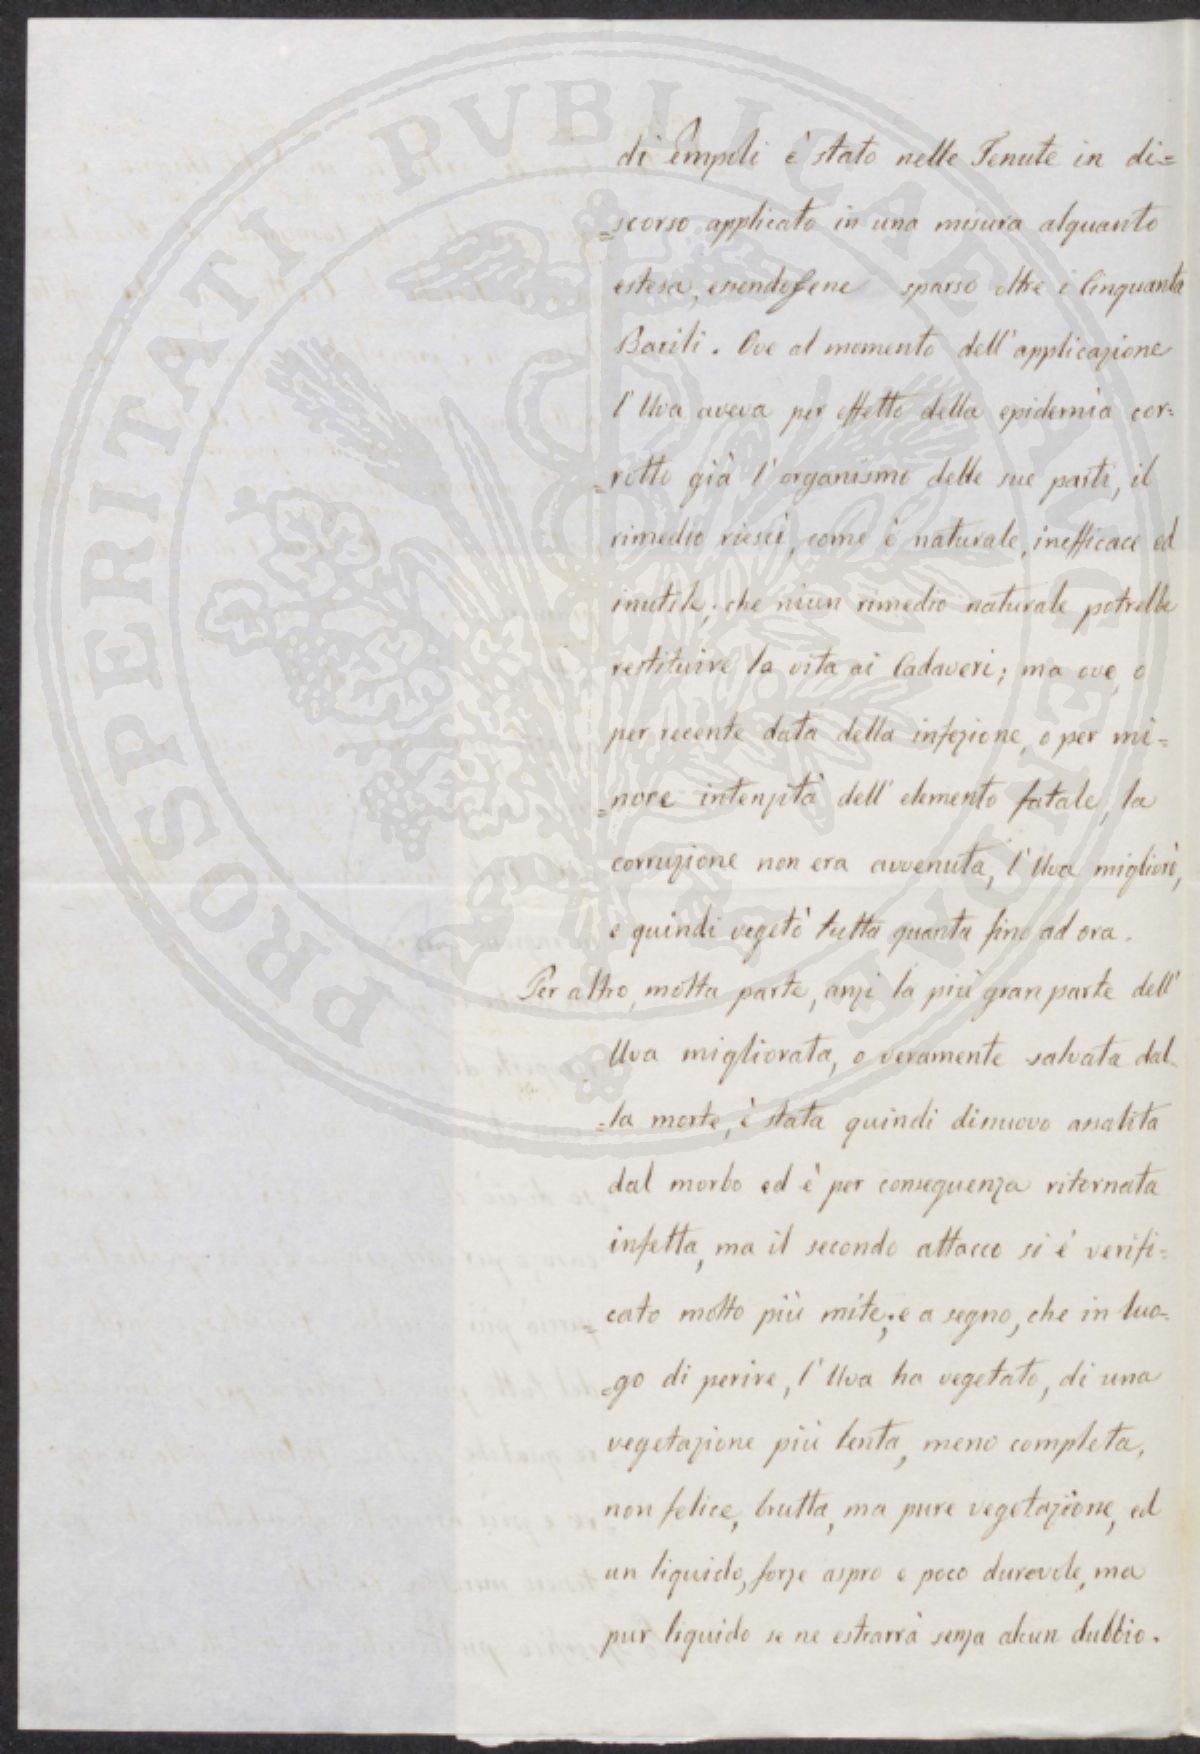 di Empoli è stato nelle Tenute in di=
=scorso applicato in una misura alquanto
estesa, essendosene sparso oltre i Cinquanta
Barili. Ove al momento dell'applicazione
l'Uva aveva per effetto della epidemia cor=
=rotto già l'organismo delle sue parti, il
rimedio riescì, come è naturale, inefficace ed
inutile; che niun rimedio naturale potrebbe
restituire la vita ai Cadaveri; ma ove, o
per recente data della infezione, o per mi=
=nore intensità dell'elemento fatale, la
corruzione non era avvenuta, l'Uva migliorò,
e quindi vegetò tutta quanta fino ad ora.
Per altro, molta parte, anzi la più gran parte dell'
Uva migliorata, o veramente salvata dal=
=la morte, è stata quindi dinuovo assalita
dal morbo ed è per conseguenza ritornata
infetta, ma il secondo attacco si è verifi=
=cato molto più mite; e a segno, che in luo=
=go di perire, l'Uva ha vegetato, di una
vegetazione più lenta, meno completa,
non felice, brutta, ma pure vegetazione, ed
un liquido, forse aspro e poco durevole, ma
pur liquido se ne estrarrà senza alcun dubbio.
PROSPERITATI PVBLICAE